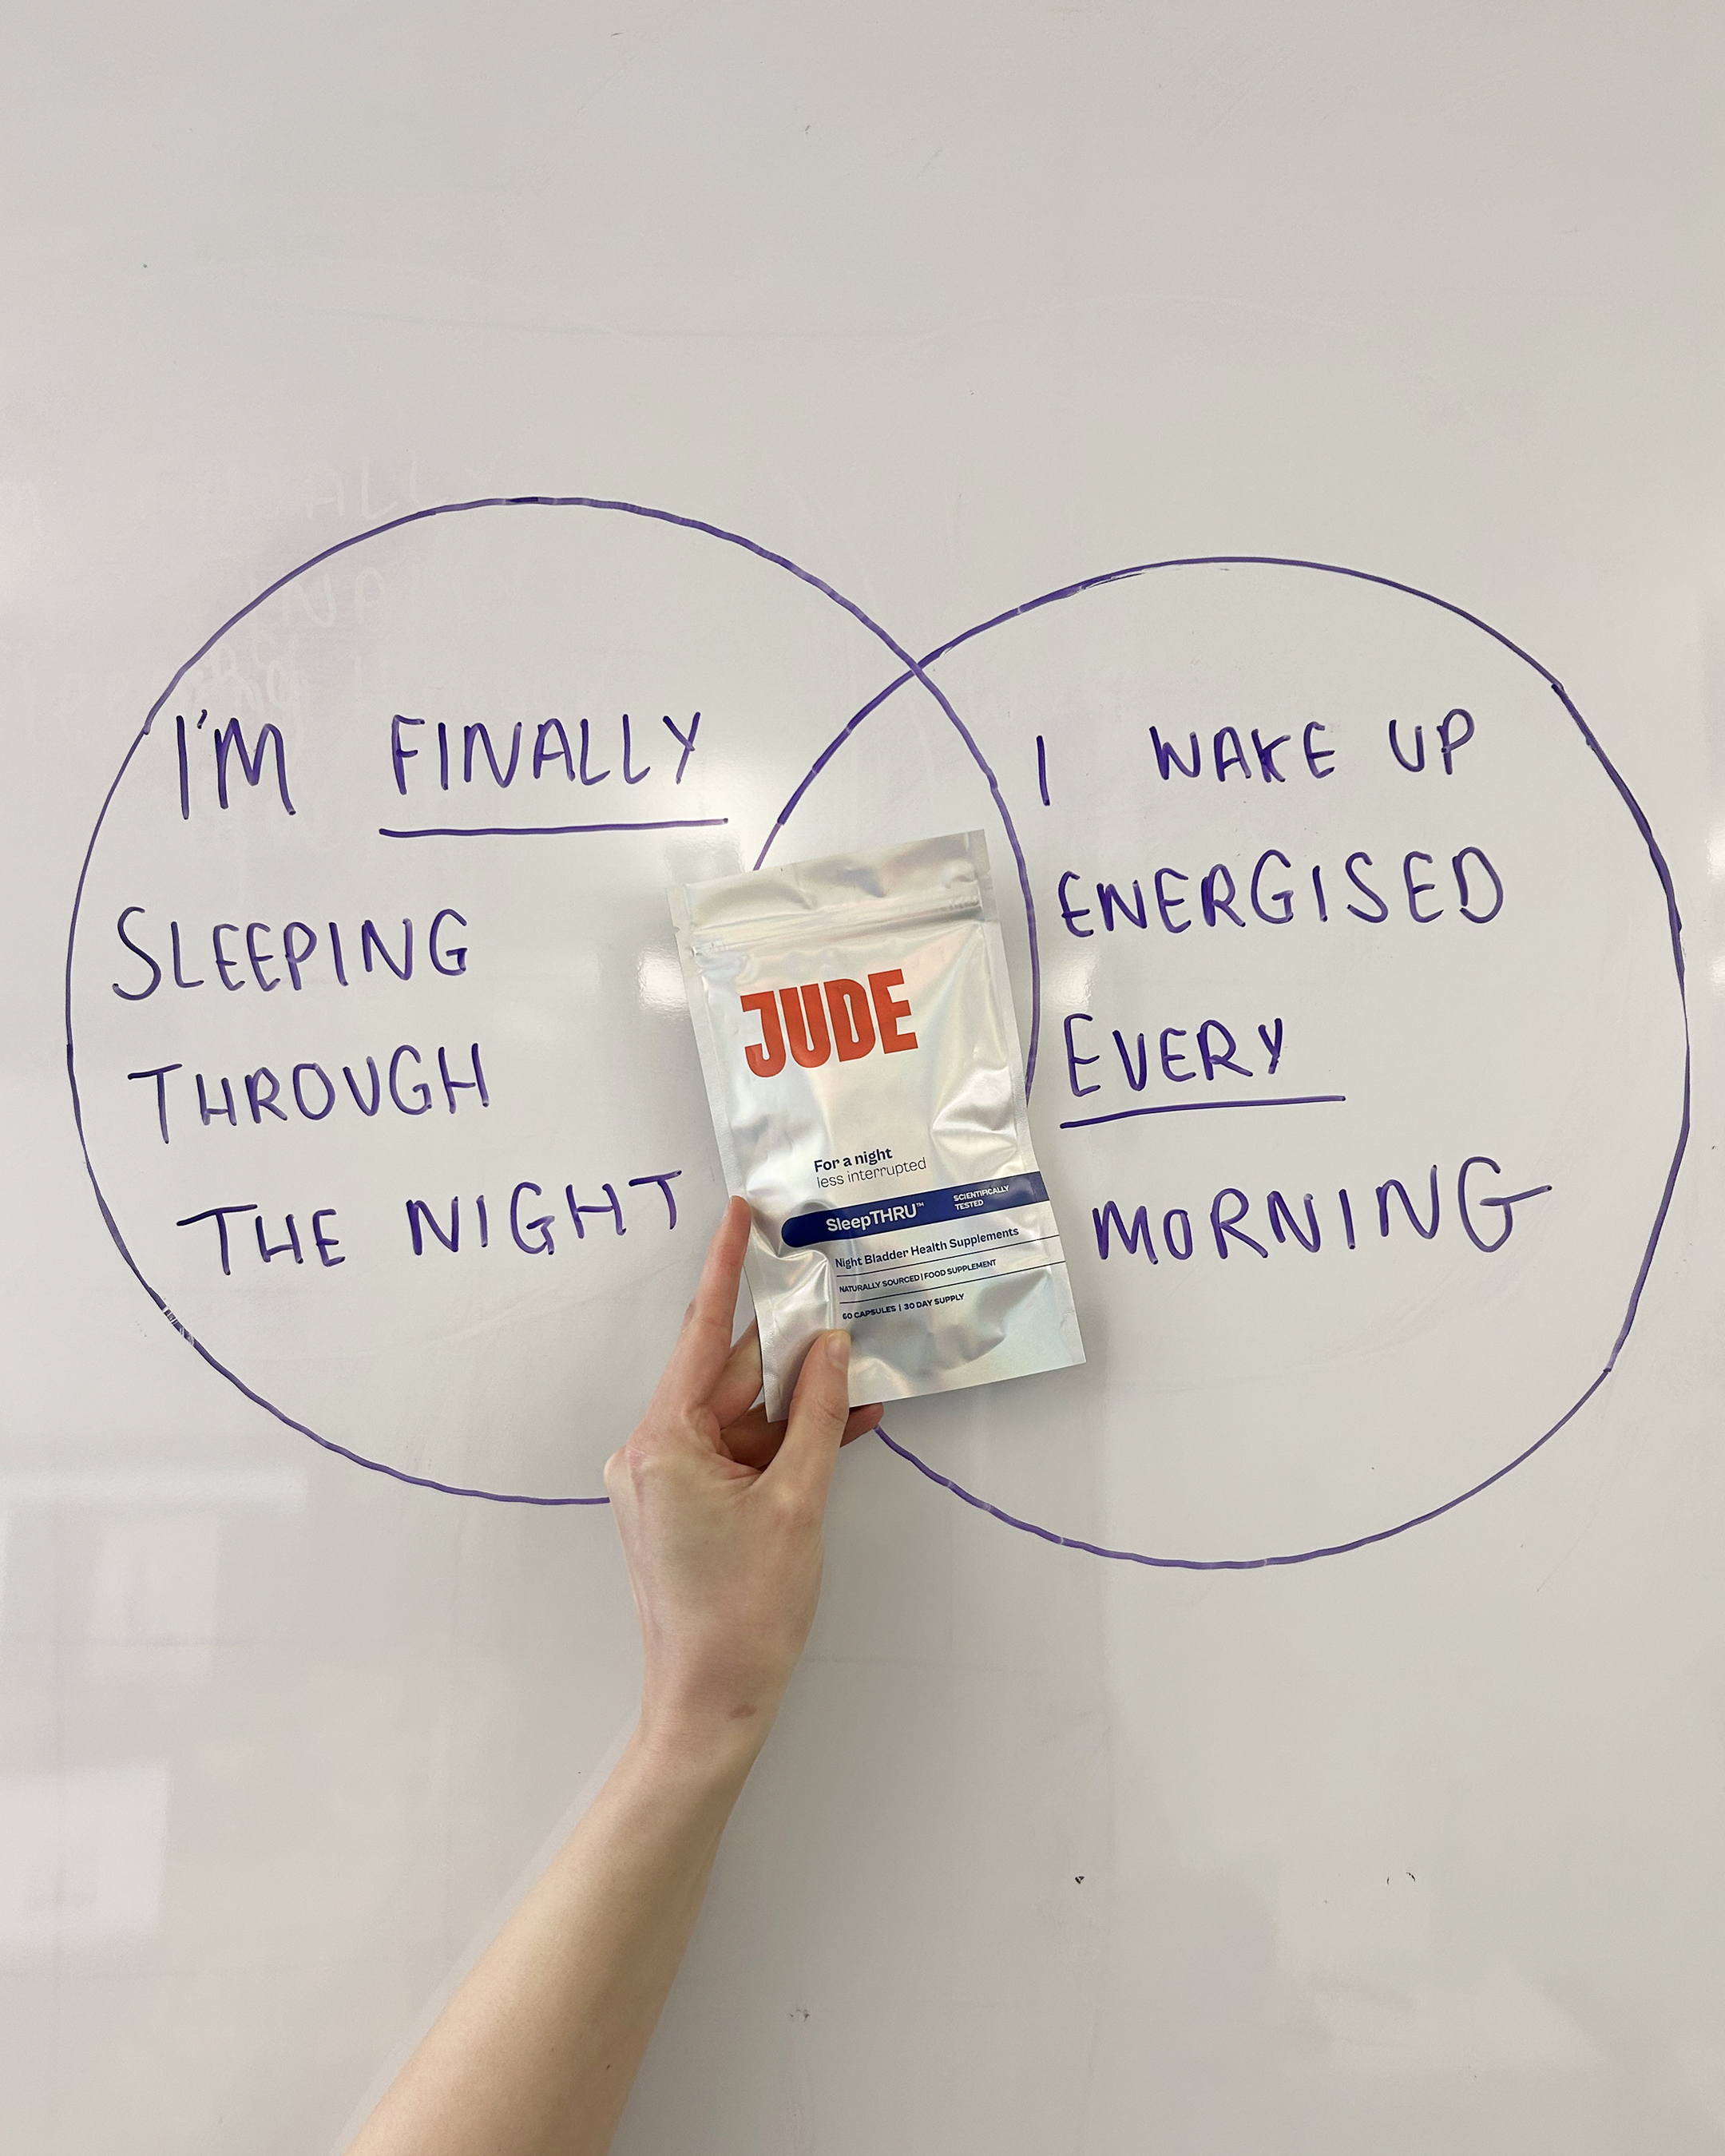 I'M FINALLY
SLEEPING
THROUGH
THE NIGHT
I WAKE UP
ENERGISED
EVERY
MORNING
JUDE
For a night
less interrupted
SleepTHRU™
SCIENTIFICALLY
TESTED
Night Bladder Health Supplements
NATURALLY SOURCED | FOOD SUPPLEMENT
60 CAPSULES | 30 DAY SUPPLY